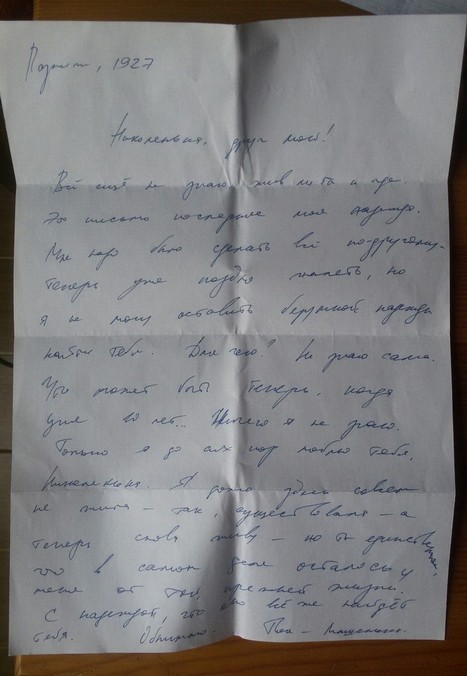 1927
Николенька, друг мой!
Всё ещё не знаю жив ли ты и где.
Это письмо последняя моя надежда.
Мне надо было сделать всё по-другому.
Теперь уже поздно жалеть, но
я не могу оставить безумной надежды
найти тебя. Для чего? Не знаю сама.
Что может быть теперь, когда
уже 10 лет... Ничего я не знаю.
Только я до сих пор люблю тебя,
Николенька. Я долго здесь совсем
не жила – так, существовала – а
теперь снова живу – но ты единственное,
что в самом деле осталось у
меня от той, прежней жизни.
С надеждой, что это всё же найдёт
тебя. Обнимаю. Твоя – Машенька.